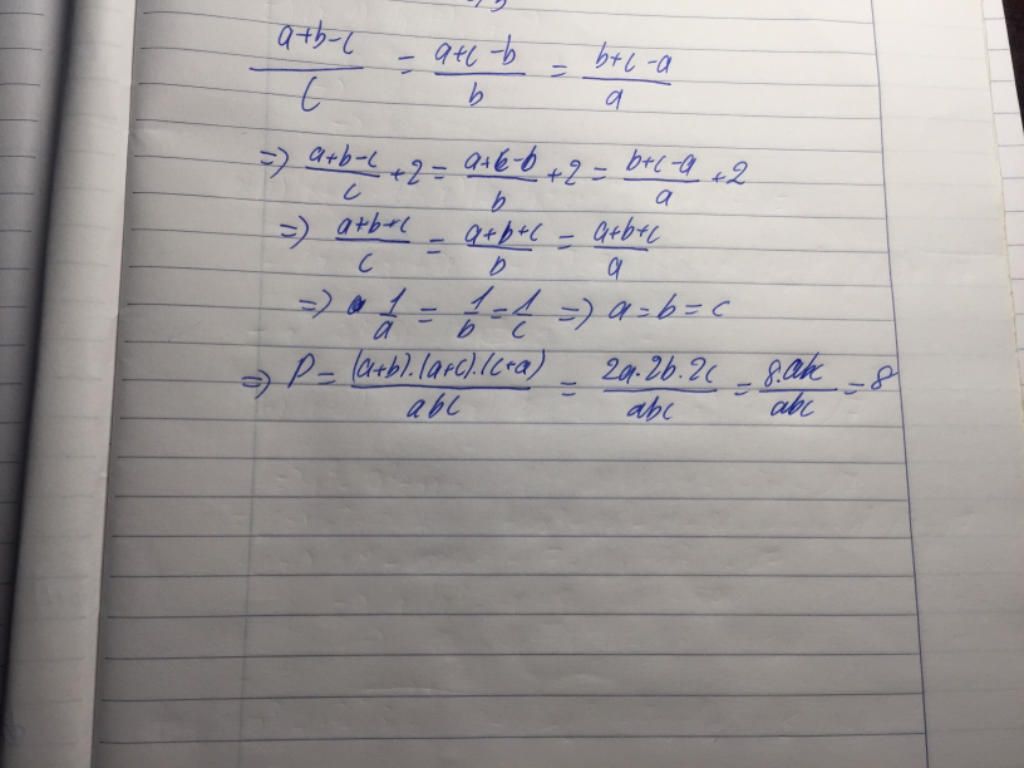 (a+b-c)/c = (a+c-b)/b = (b+c-a)/a
=> (a+b-c)/c + 2 = (a+c-b)/b + 2 = (b+c-a)/a + 2
=> (a+b+c)/c = (a+b+c)/b = (a+b+c)/a
=> 1/a = 1/b = 1/c => a = b = c
=> P = ((a+b).(a+c).(c+a))/abc = (2a.2b.2c)/abc = (8.abc)/abc = 8